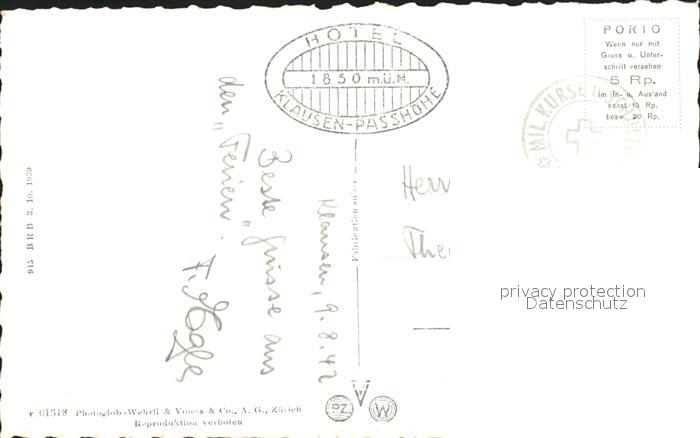 HOTEL
1850 m.ü.M.
KLAUSEN-PASSHÖHE
PORTO
Wenn nur mit
Gruss u. Unter-
schrift versehen
5 Rp.
im In- u. Ausland
sonst 10 Rp.
bezw. 20 Rp.
MIL. KURSE
Klausen, 9.8.42
Beste Grüsse aus
den „Ferien"
Herr
The
Fabrication suisse
915 BRB 3. 10. 1939
privacy protection
Datenschutz
c 01518 Photoglob-Wehrli & Vouga & Co., A. G., Zürich
Reproduktion verboten
PZ
W